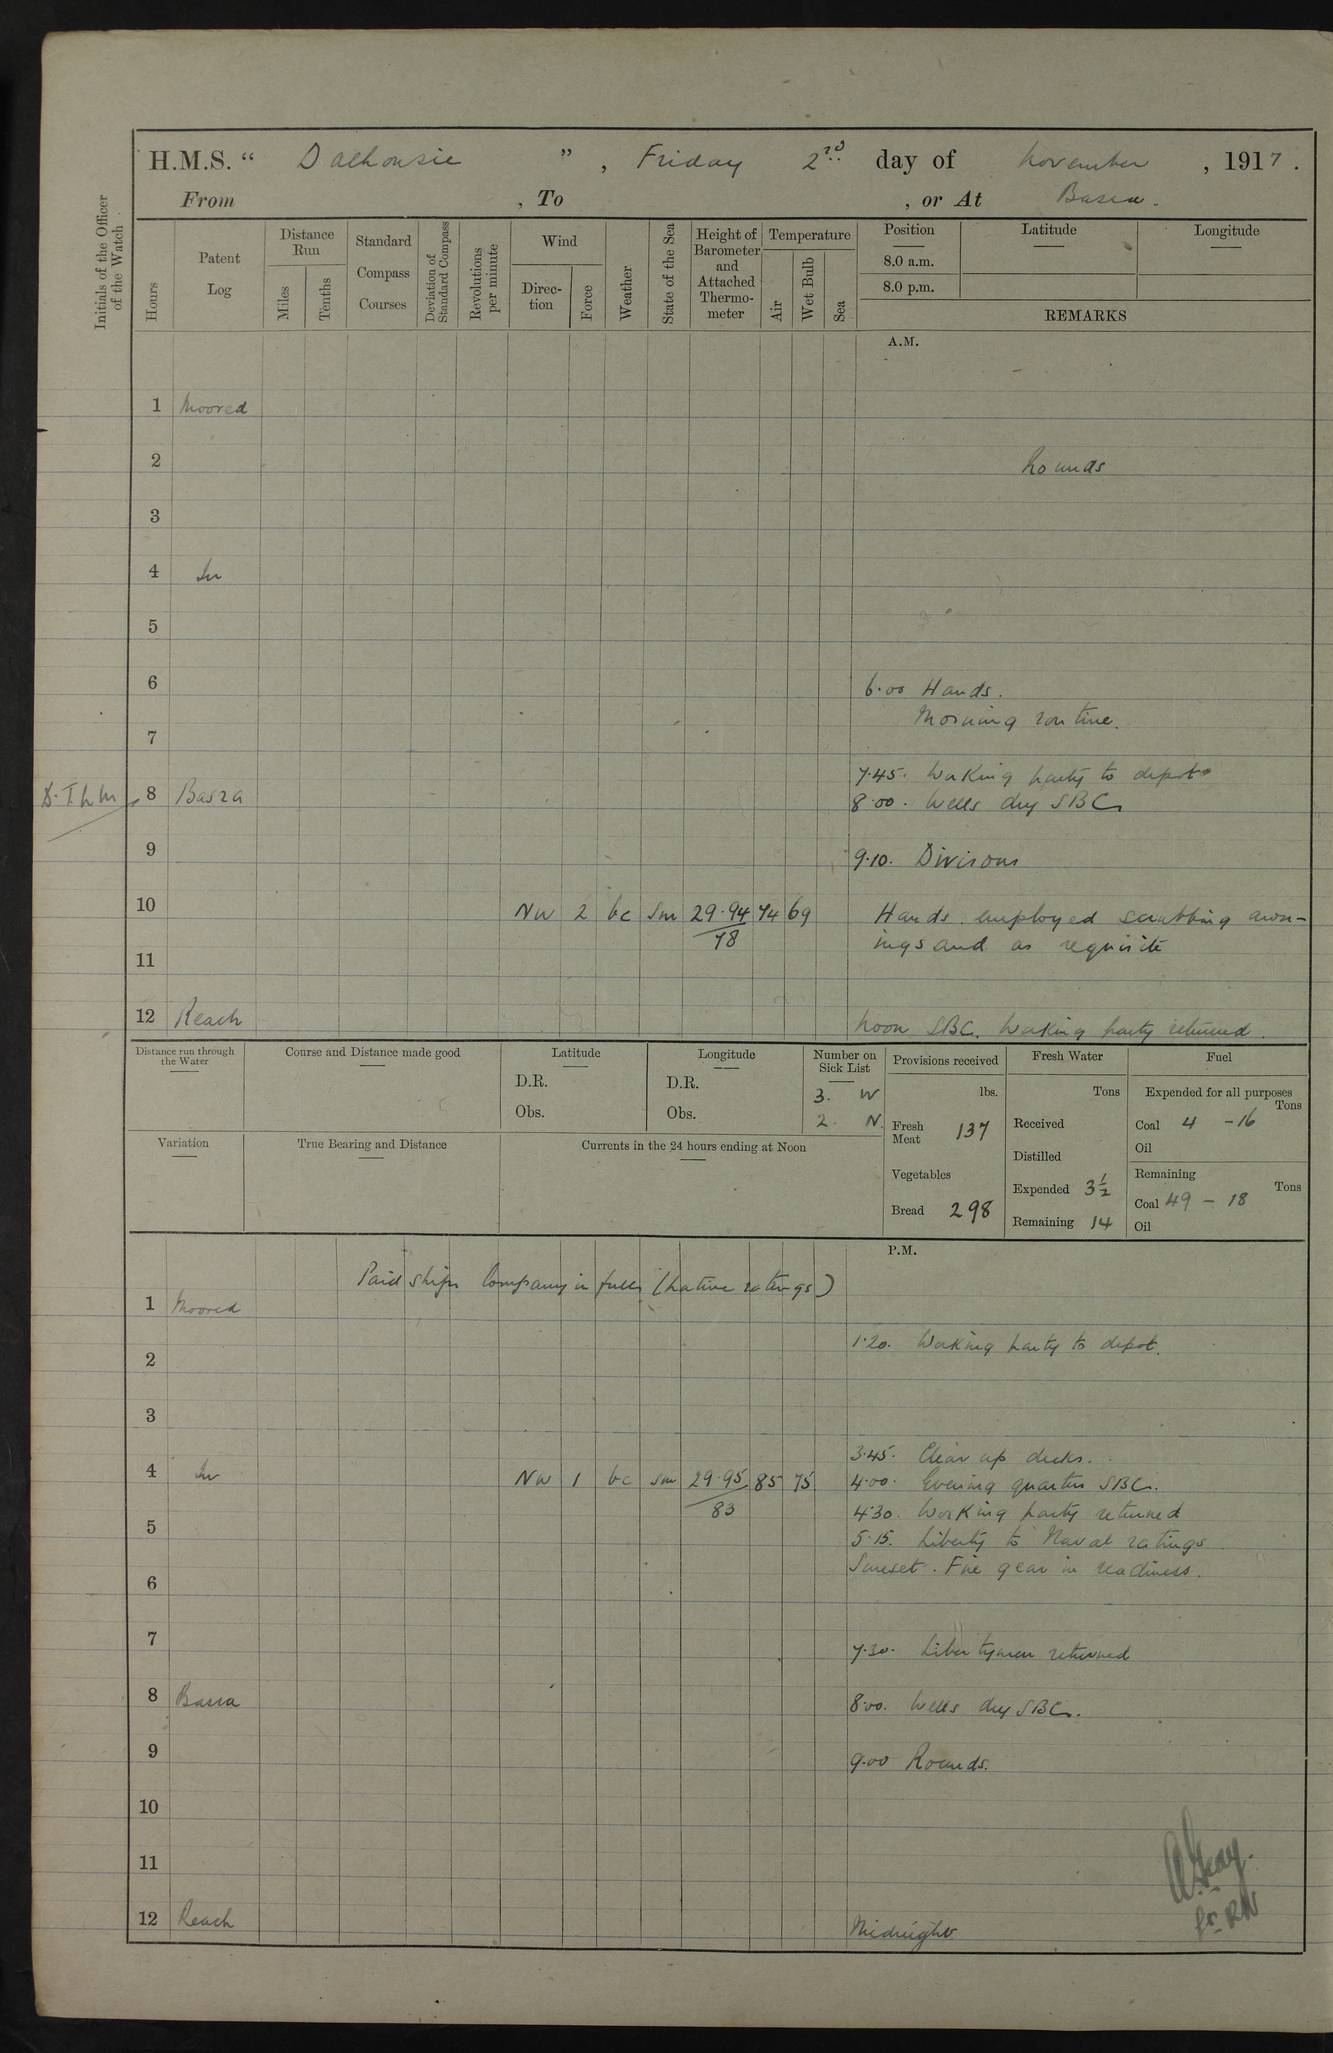 H.M.S. “ Dalhousie ” , Friday 2nd day of November , 1917 .
From , To , or At Basra .
Initials of the Officer of the Watch
Hours
Patent Log
Distance Run
Miles
Tenths
Standard Compass Courses
Deviation of Standard Compass
Revolutions per minute
Wind
Direc-tion
Force
Weather
State of the Sea
Height of Barometer and Attached Thermo-meter
Temperature
Air
Wet Bulb
Sea
Position
8.0 a.m.
8.0 p.m.
Latitude
Longitude
REMARKS
A.M.
1 Moored
2 Rounds
3
4 In
5
6 6.00 Hands.
Morning routine.
7
7.45. Working party to depot
8 Basra 8.00. Wells dry SBC
9 9.10. Divisons
10 NW 2 bc Sm 29.94 74 69 Hands employed scrubbing awn-
78 ings and as requisite
11
12 Reach Noon SBC. Working party returned.
Distance run through the Water
Course and Distance made good
Latitude
D.R.
Obs.
Longitude
D.R.
Obs.
Number on Sick List
3. W
2. N.
Provisions received
lbs.
Fresh Meat 137
Vegetables
Bread 298
Fresh Water
Tons
Received
Distilled
Expended 3½
Remaining 14
Fuel
Expended for all purposes
Tons
Coal 4 - 16
Oil
Remaining
Tons
Coal 49 - 18
Oil
Variation
True Bearing and Distance
Currents in the 24 hours ending at Noon
P.M.
Paid ships Company in full (Native ratings)
1 Moored
1.20. Working party to depot.
2
3
3.45. Clear up decks.
4 In NW 1 bc sm 29.95 85 75 4.00. Evening quarters SBC.
83 4.30. Working party returned
5 5.15. Liberty to Naval ratings
Sunset. Fire gear in readiness.
6
7 7.30. Libertymen returned
8 Basra 8.00. Wells dry SBC.
9 9.00 Rounds.
10
11
A Gray.
Lt RN
12 Reach Midnight